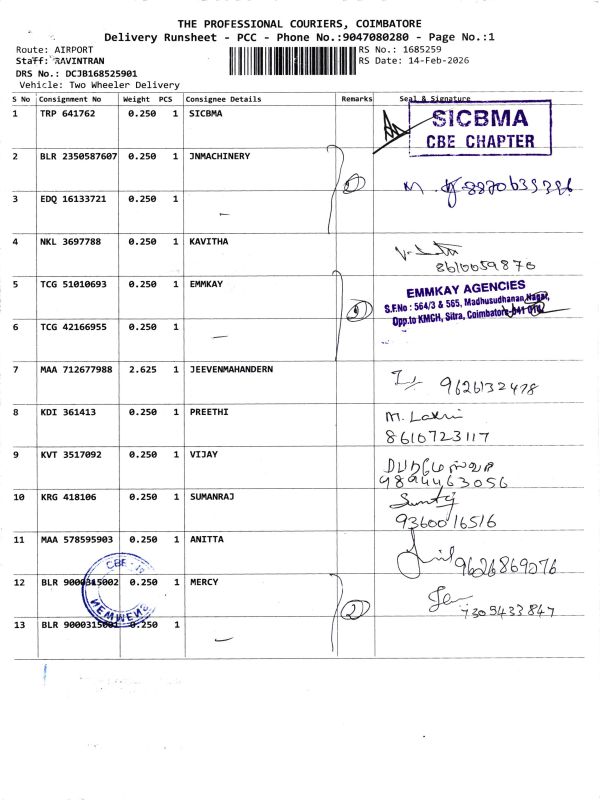 THE PROFESSIONAL COURIERS, COIMBATORE
Delivery Runsheet - PCC - Phone No.:9047080280 - Page No.:1
Route: AIRPORT RS No.: 1685259
Staff: RAVINTRAN RS Date: 14-Feb-2026
DRS No.: DCJB168525901
Vehicle: Two Wheeler Delivery
S No Consignment No Weight PCS Consignee Details Remarks Seal & Signature
1 TRP 641762 0.250 1 SICBMA
SICBMA
CBE CHAPTER
2 BLR 2350587607 0.250 1 JNMACHINERY
3 EDQ 16133721 0.250 1 —
4 NKL 3697788 0.250 1 KAVITHA
8610059876
5 TCG 51010693 0.250 1 EMMKAY
EMMKAY AGENCIES
S.F.No : 564/3 & 565, Madhusudhanan Nagar,
Opp.to KMCH, Sitra, Coimbatore-641 014.
6 TCG 42166955 0.250 1 —
7 MAA 712677988 2.625 1 JEEVENMAHANDERN
9626132478
8 KDI 361413 0.250 1 PREETHI
8610723117
9 KVT 3517092 0.250 1 VIJAY
9894463056
10 KRG 418106 0.250 1 SUMANRAJ
9360016516
11 MAA 578595903 0.250 1 ANITTA
9626869076
12 BLR 9000315002 0.250 1 MERCY 2
7305433847
13 BLR 9000315001 0.250 1 —